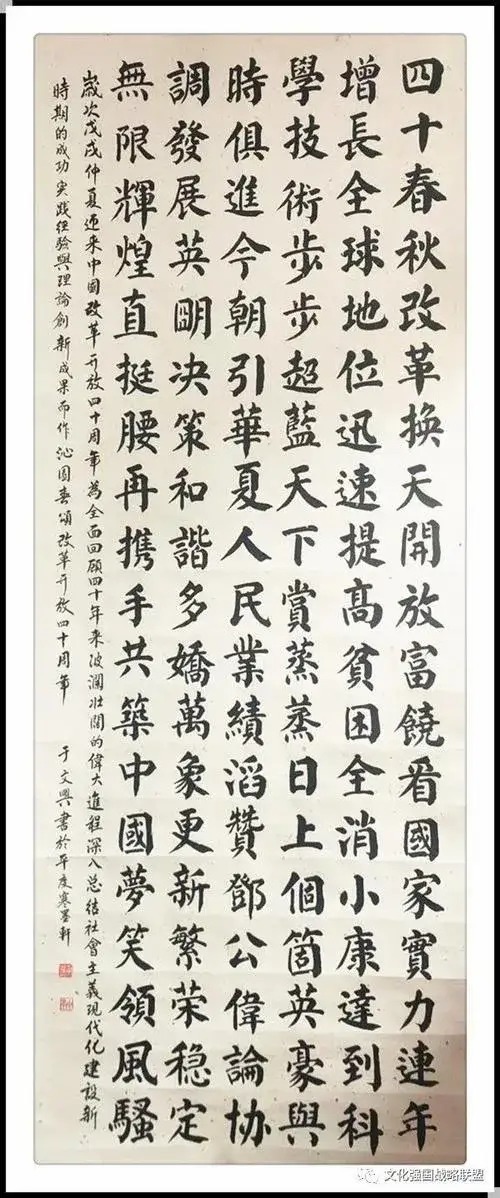 四十春秋改革換天開放富饒看國家實力連年
增長全球地位迅速提高貧困全消小康達到科
學技術步步超藍天下賞蒸蒸日上個箇英豪與
時俱進今朝引華夏人民業績滔贊鄧公偉論协
調發展英明决策和諧多嬌萬象更新繁荣稳定
無限輝煌直挺腰再携手共築中國夢笑領風騷
歲次戊戌仲夏迎来中國改革开放四十周年為全面回顾四十年来波瀾壯闊的偉大進程深入总结社會主義現代化建設新
時期的成功实践经驗與理論創新成果而作沁園春頌改革开放四十周年 于文興書於平度寒墨軒
文化强国战略联盟